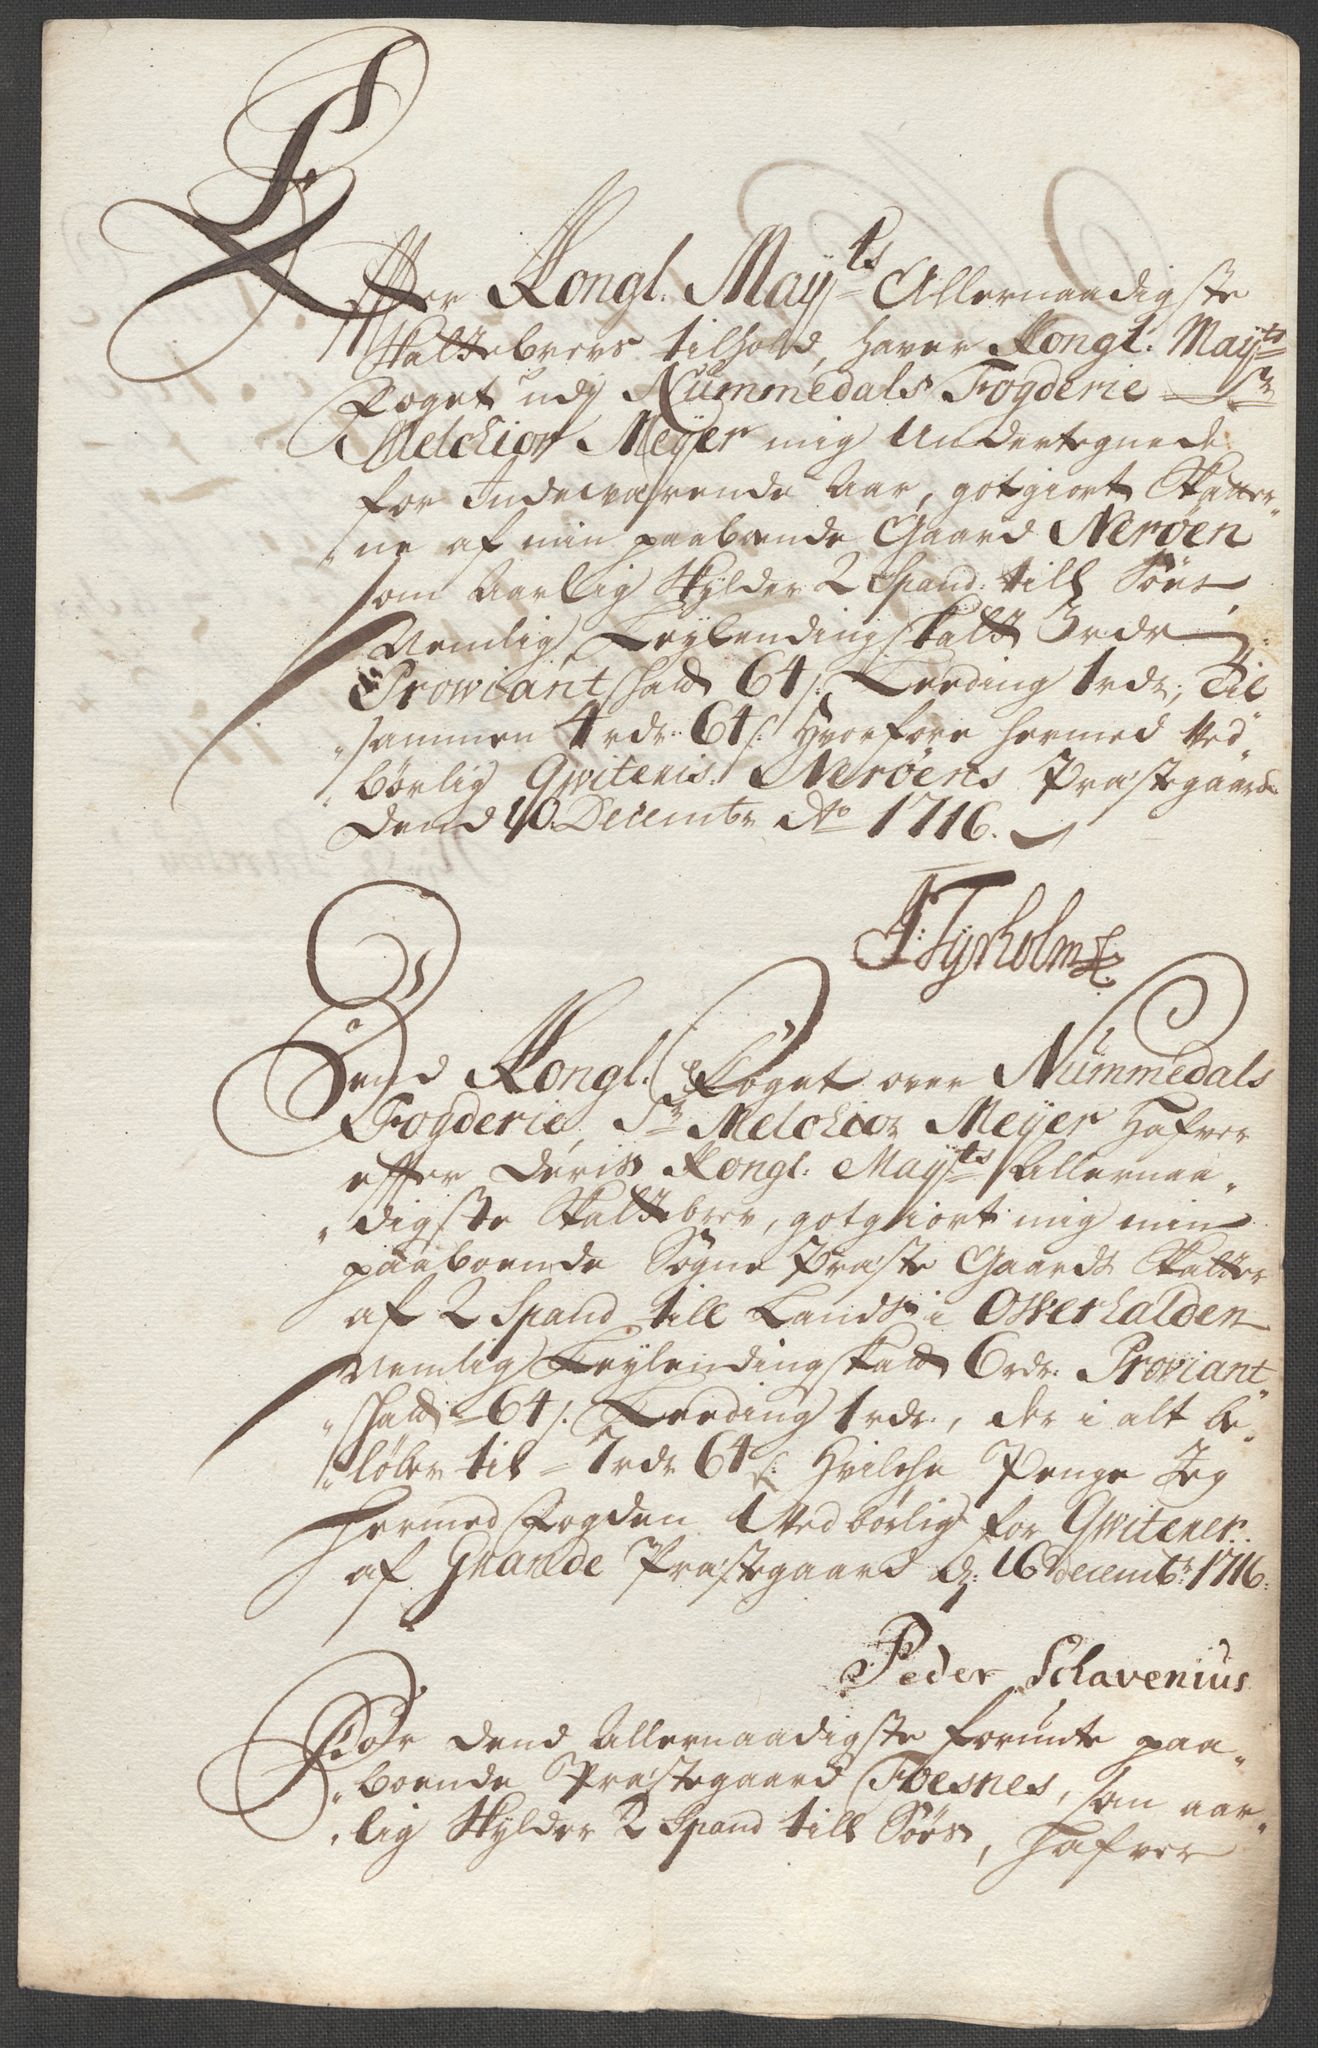 Efter Kongl. May.ts Allernaadigste
Skattebrevs tilhold, haver Kongl. May.ts
Foget udj Nummedals Fogderie Sr
Melchior Meyer mig Undertegnede
for Indeværende Aar, gotgiort Skatter„
„ne af min paaboende Gaard Nerøen
som Aarlig Skylder 2 Spand till Søes
Nemlig Leylending skatt 3 rdr
Prowiant skatt 64 s. Leeding 1 rdr; Til
„sammen 4 rdr. 64 s. Hvorfore hermed Ved„
„børlig Qwiteris. Nerøens Præstegaard
Dend 10 Decembr Ao 1716.
Tyrholm
Dend Kongl. Foget over Nummedals
Fogderie, Sr Melchior Meyer Hafver
effter Deris Kongl. May.ts Allernaa„
„digste Skattebrev, gotgiort mig min
paaboende Sogne Præste Gaards Skatter
af 2 Spand till Lands i Offverhalden
Nemlig Leylending skatt 6 rdr. Proviant„
„skatt 64 s. Leeding 1 rdr., der i alt be„
„løber til 7 rdr 64 s. Hvilche Penge Jeg
hermed Fogden Vedbørlig for Qwiterer.
af Granede Præstegaard d: 16 decembr: 1716.
Peder Schavenius
For dend Allernaadigste forundte paa„
„boende Præstegaard Foesnes, som aar„
„lig Skylder 2 Spand till Søes, Hafver